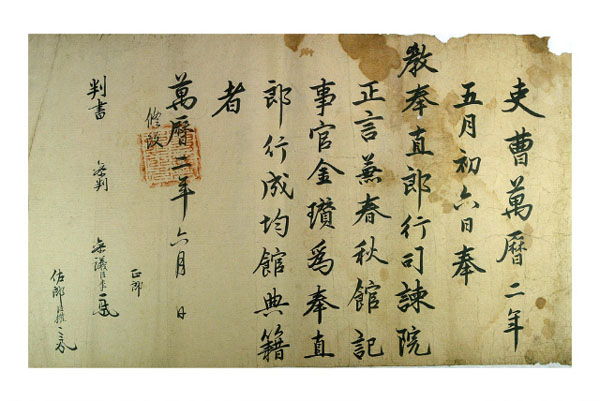 吏曹萬曆二年
五月初六日奉
教奉直郎行司諫院
正言兼春秋館記
事官金瓚爲奉直
郎行成均館典籍
者
萬曆二年六月 日
判書 參判 參議臣李
正郎
佐郎臣權